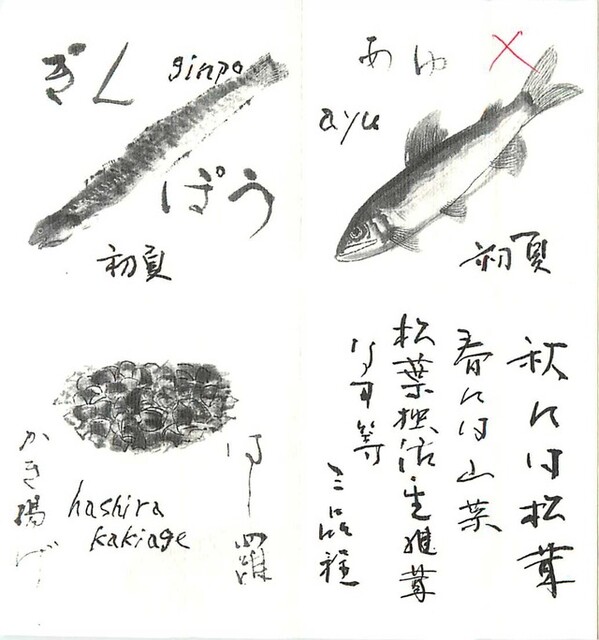 ぎん
ginpo
ぽう
初夏
あゆ
ayu
初夏
はし羅
かき揚げ
hashira
kakiage
秋には松茸
春には山菜
松葉独活・生椎茸
等